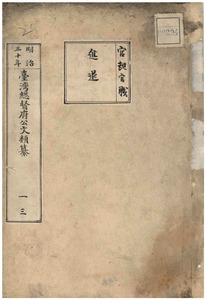 官規官職
進退
明治
三十年
臺灣總督府公文類纂
一三